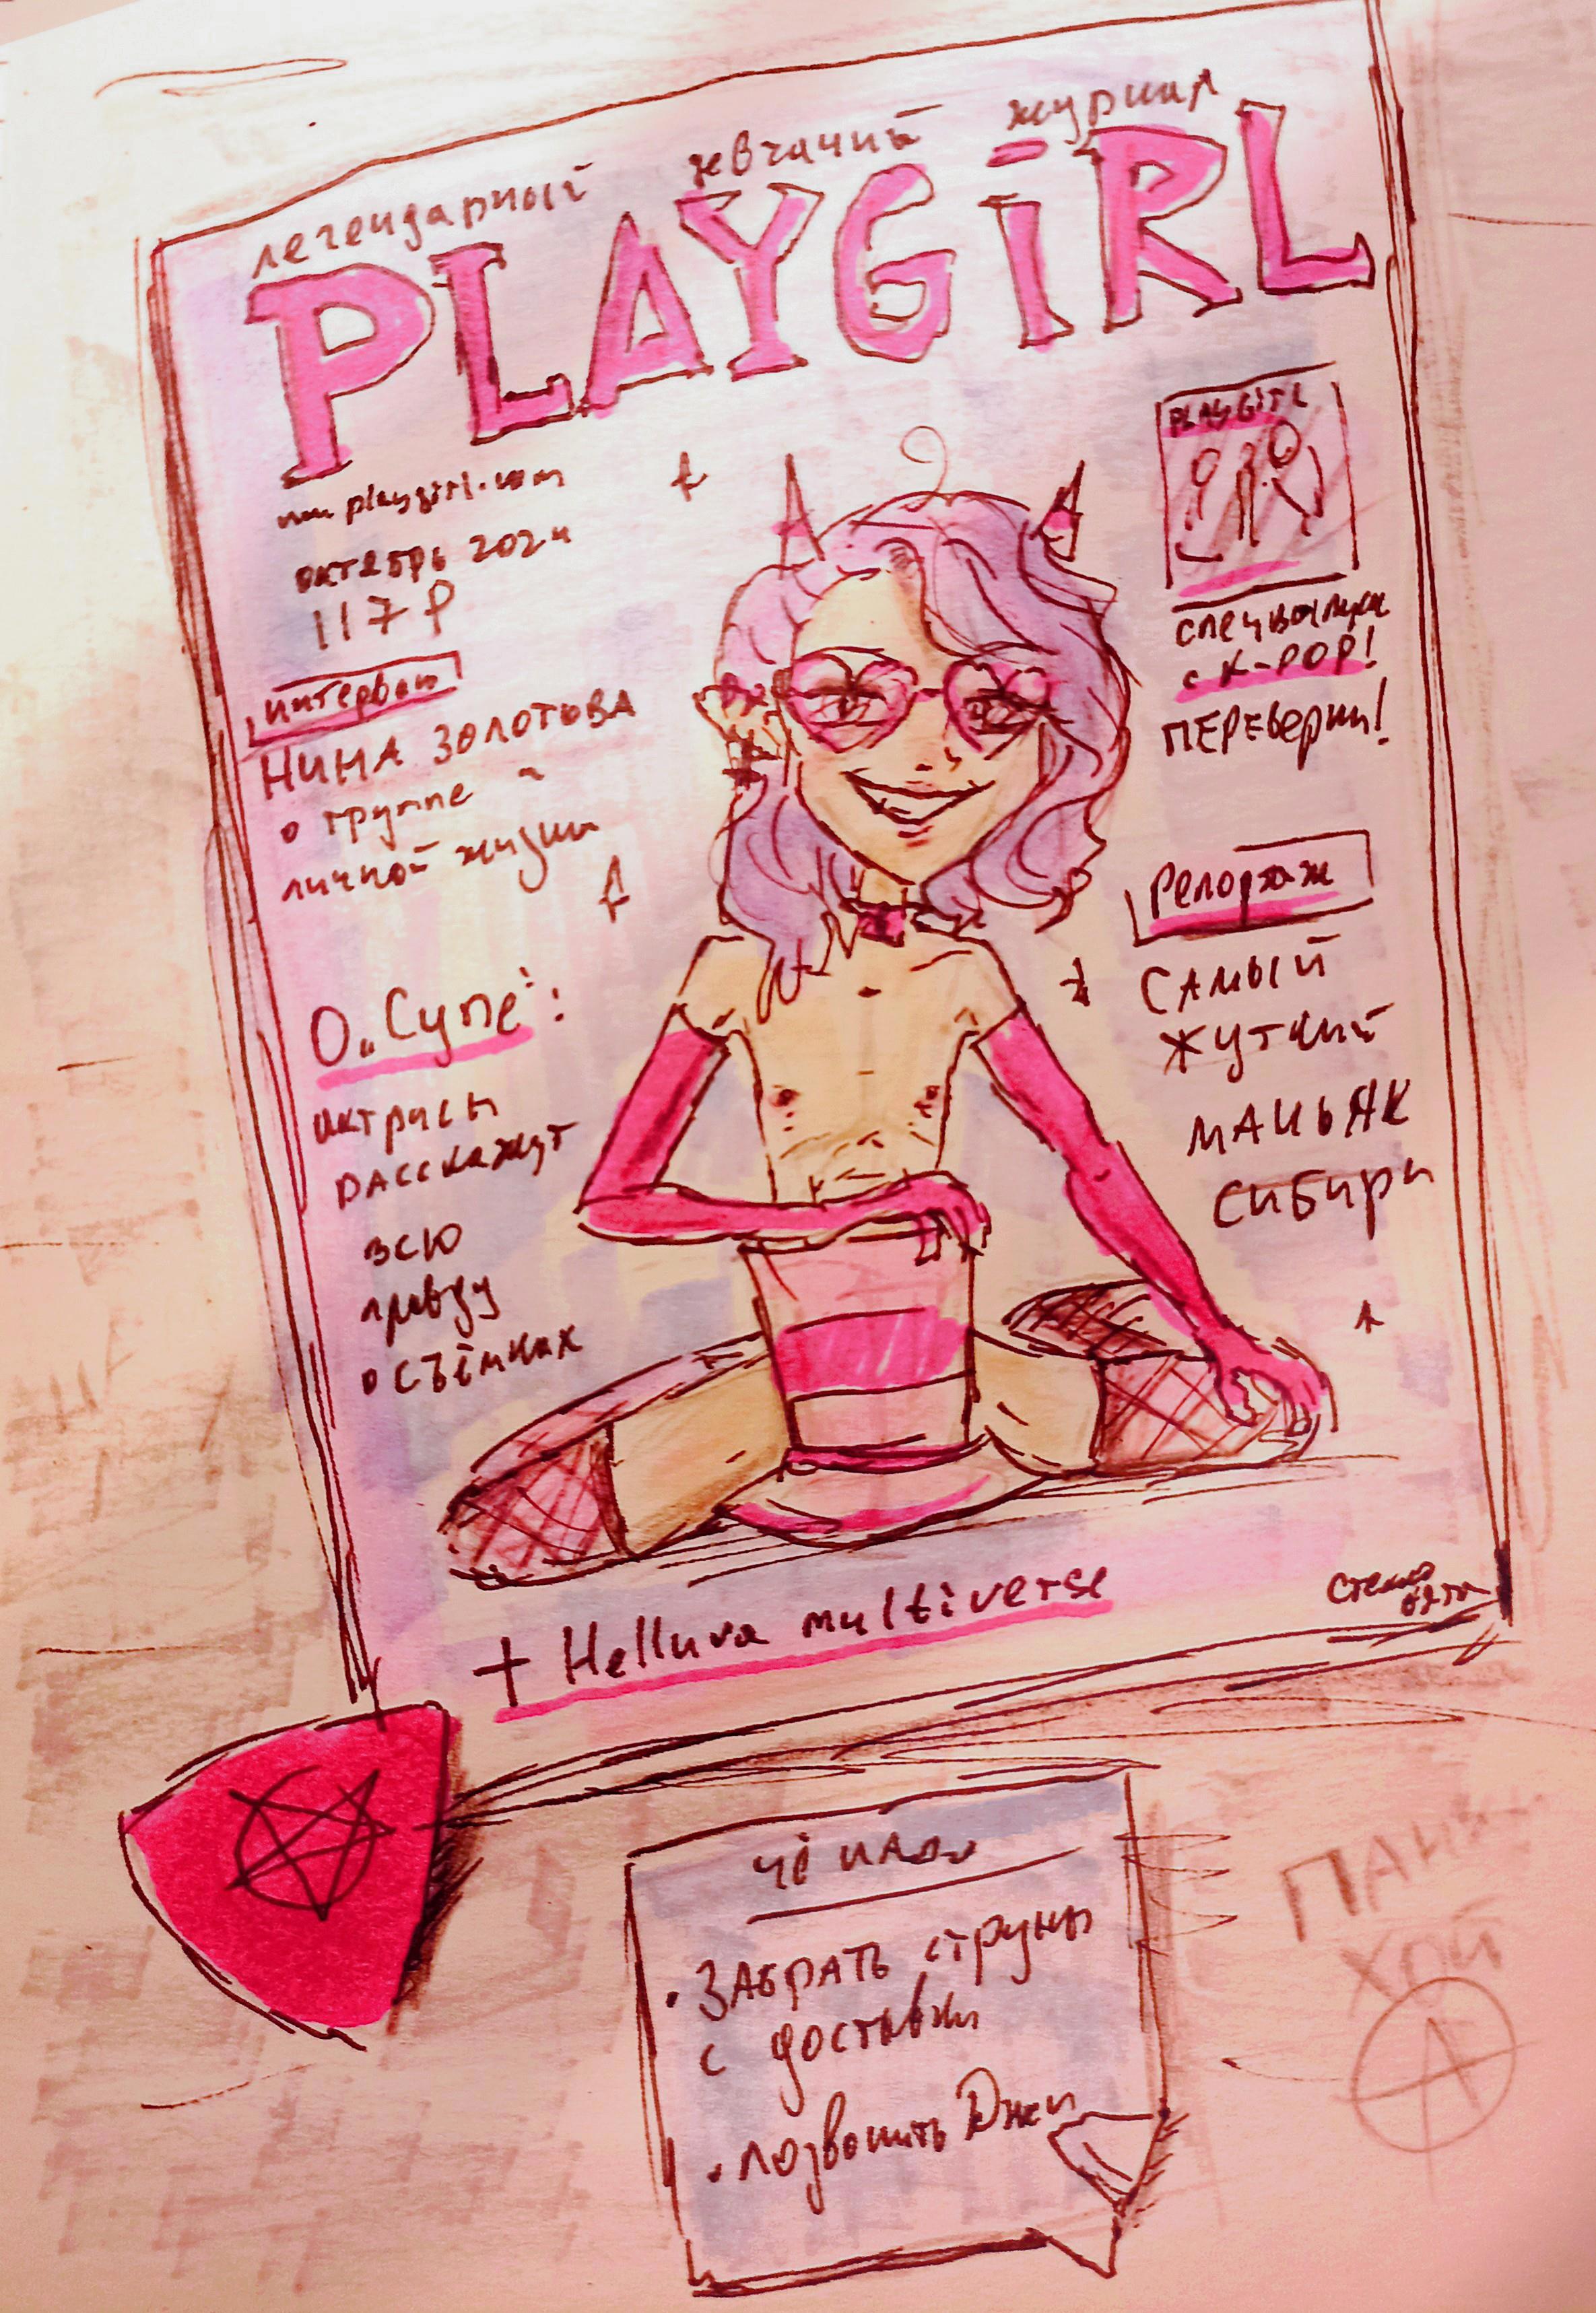 легендарный жвачный журнал
PLAYGiRL
www.playgirl.com
октябрь 2024
117 ₽
интервью
НИНА ЗОЛОТОВА
о группе и
личной жизни
О „Супе“:
актрисы
расскажут
всю
правду
о съёмках
PLAYGiRL
спецвыпуск
с K-POP!
ПЕРЕВерни!
Репортаж
САМЫЙ
ЖУТКИЙ
МАНЬЯК
СИБИРИ
+ Helluva multiverse
Стекло
вата
чё надо
• ЗАБРАТЬ струны
с доставки
• позвонить Джей
ПАНК
ХОЙ
A